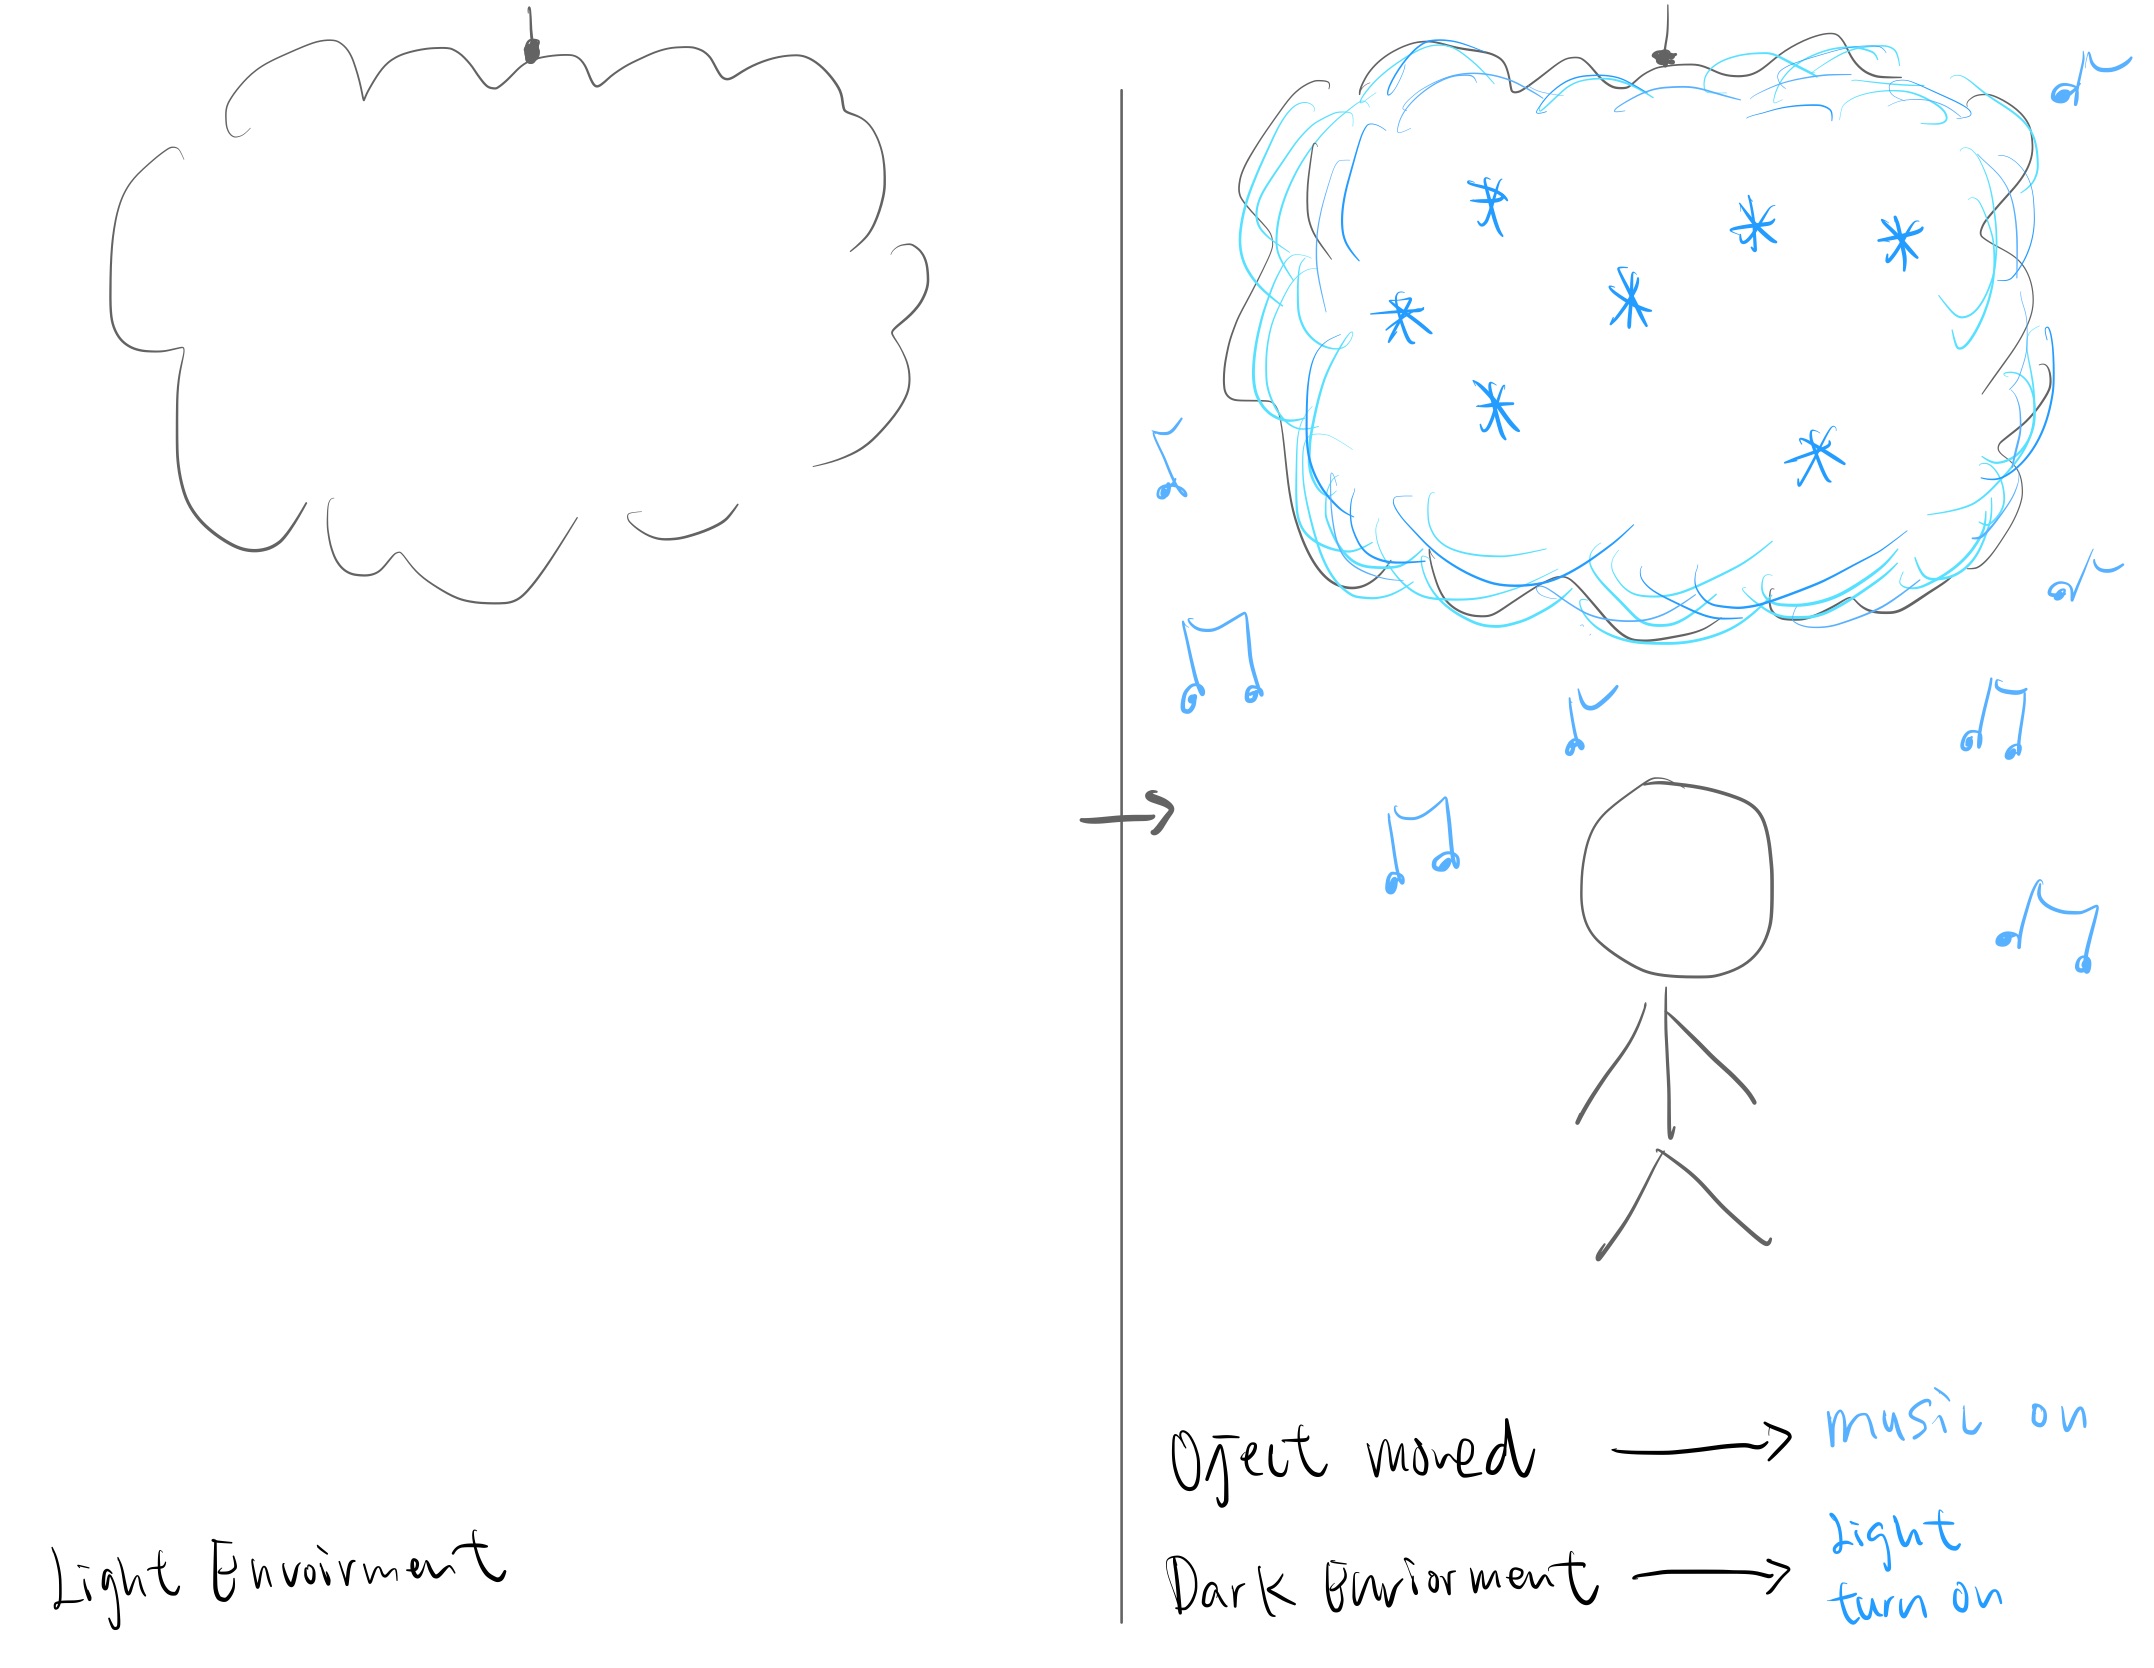 Light Envoirment
Oject moved
music on
Dark Enviorment
Light
turn on